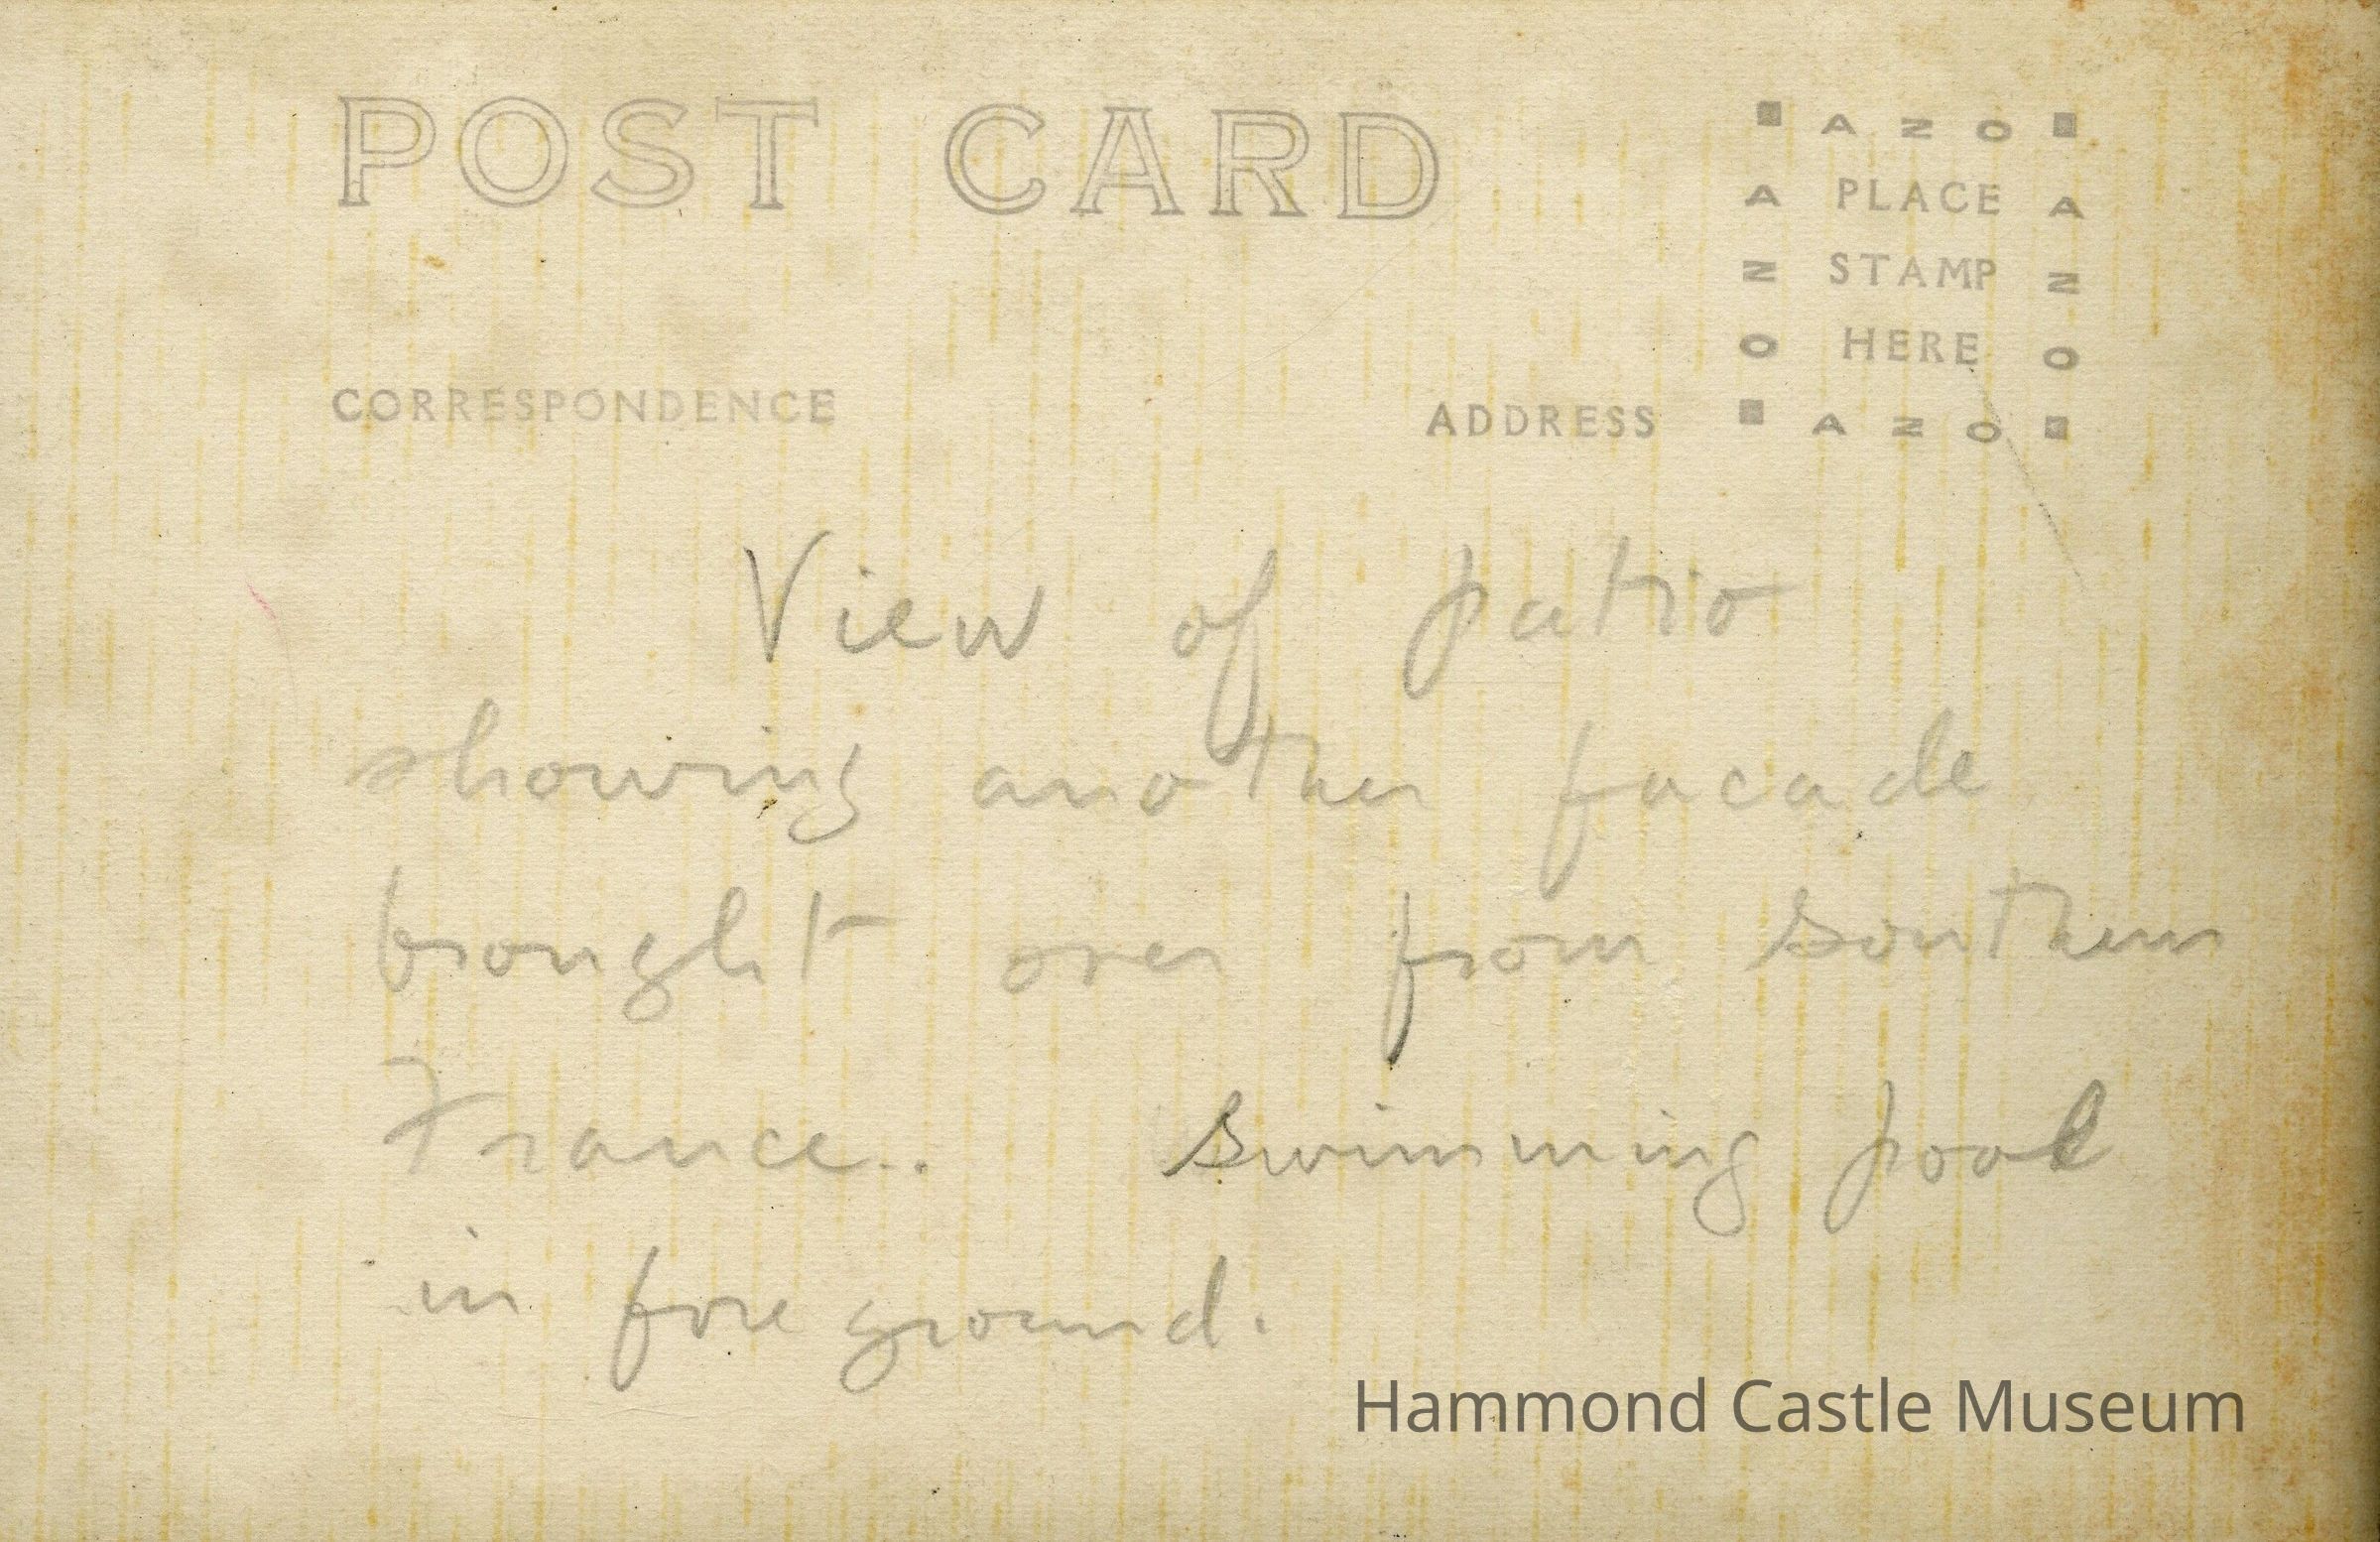 POST CARD
AZO
A PLACE A
N STAMP N
O HERE O
AZO
CORRESPONDENCE
ADDRESS
View of patio
showing another facade
brought over from southern
France.. swimming pool
in fore ground.
Hammond Castle Museum